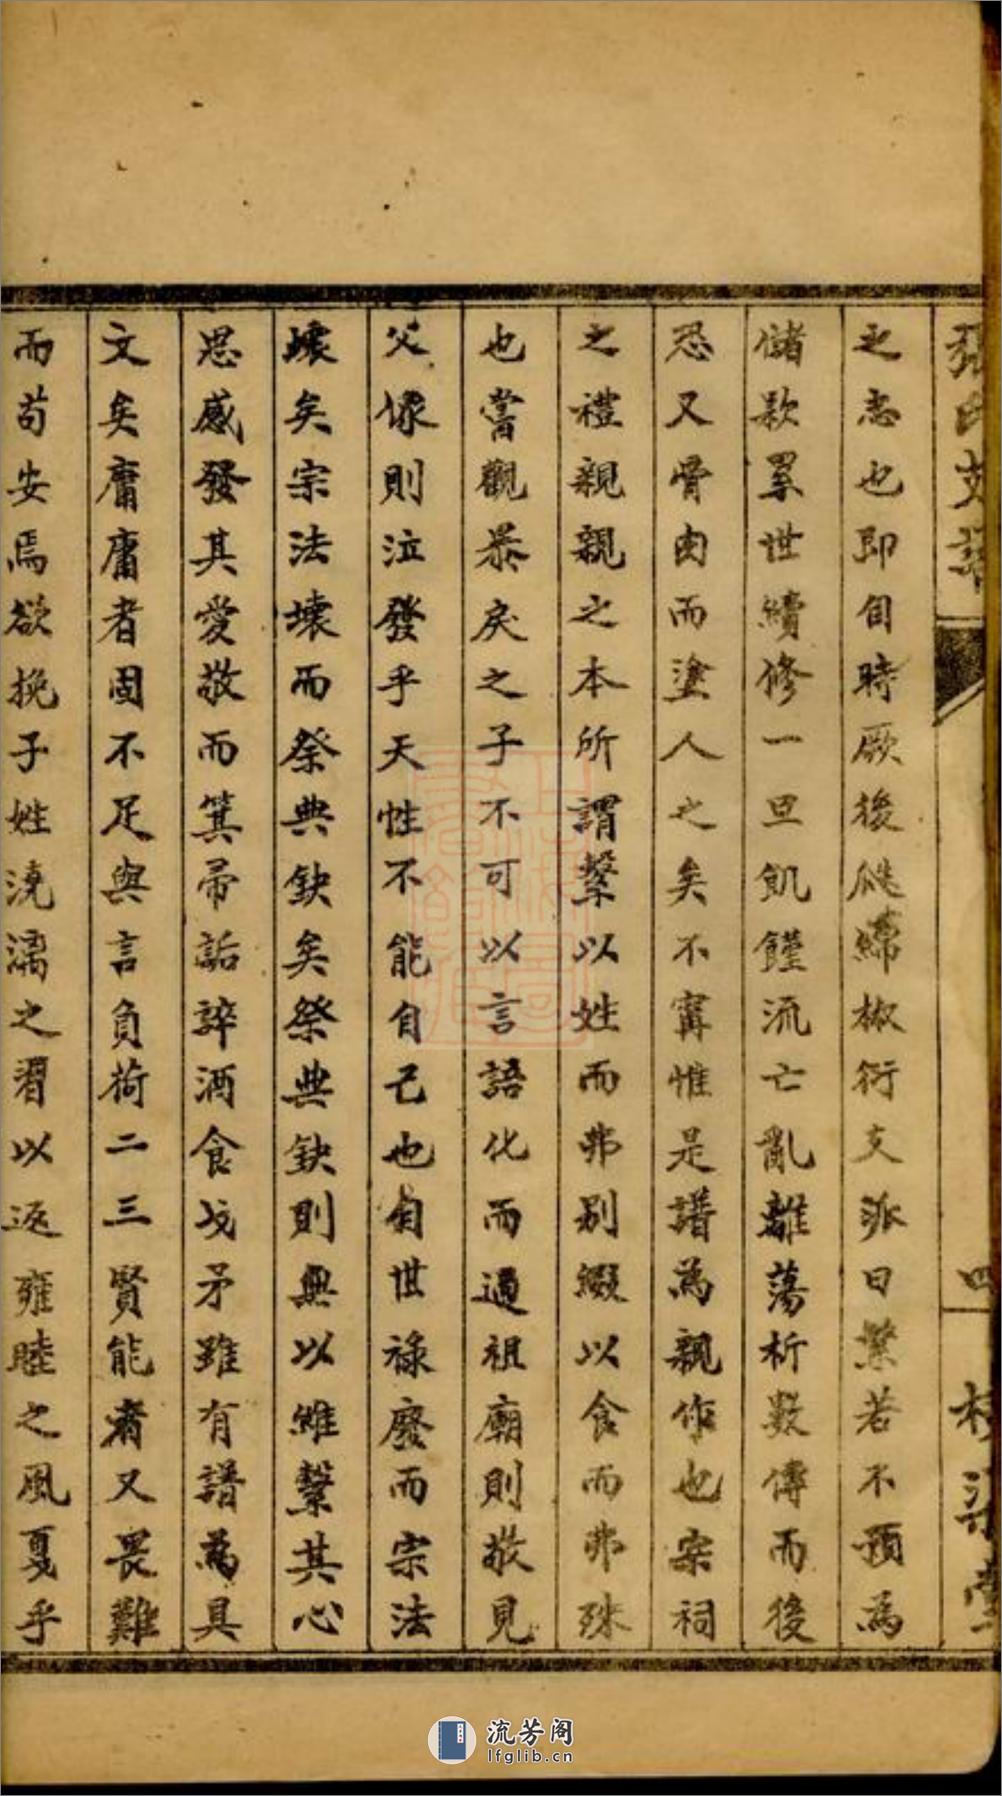 張氏支譜
四
之志也即自時厥後瓞綿椒衍支派日繁若不預為
儲款累世續修一旦飢饉流亡亂離蕩析數傳而後
恐又骨肉而塗人之矣不寗惟是譜為親作也宗祠
之禮親親之本所謂繫以姓而弗別綴以食而弗殊
也嘗觀暴戾之子不可以言語化而過祖廟則敬見
父像則泣發乎天性不能自己也自世祿廢而宗法
壞矣宗法壞而祭典缺矣祭典缺則無以維繫其心
思感發其愛敬而箕帚詬誶酒食戈矛雖有譜為具
文矣庸庸者固不足與言負荷二三賢能者又畏難
而苟安焉欲挽子姓澆漓之習以返雍睦之風戛乎
流芳阁
lfglib.cn